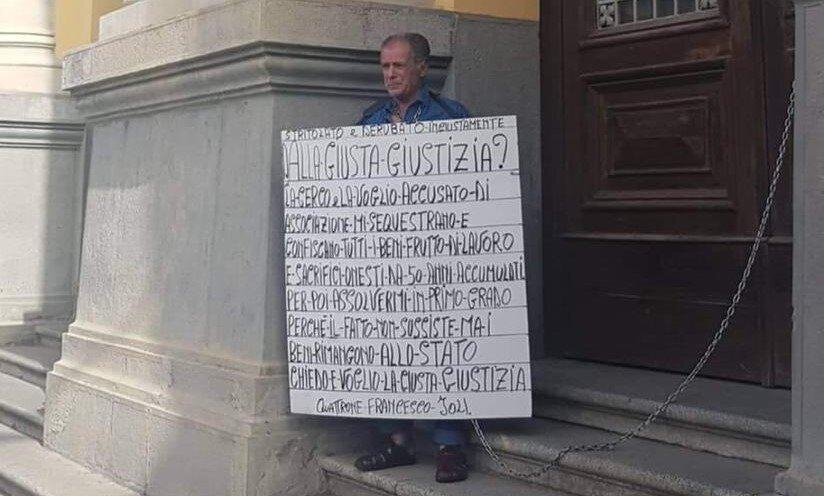 STRITOLATO E DERUBATO INGIUSTAMENTE
DALLA-GIUSTA-GIUSTIZIA?
LA CERCO E LA VOGLIO-ACCUSATO-DI
ASSOCIAZIONE-MI SEQUESTRANO-E
CONFISCANO-TUTTI-I-BENI-FRUTTO-DI-LAVORO
E-SACRIFICI ONESTI-DA-50-ANNI-ACCUMULATI
PER-POI-ASSOLVERMI-IN-PRIMO-GRADO
PERCHÈ-IL-FATTO-NON-SUSSISTE-MA-I
BENI-RIMANGONO-ALLO-STATO
CHIEDO-E-VOGLIO-LA-GIUSTA-GIUSTIZIA
QUATTRONE FRANCESCO-